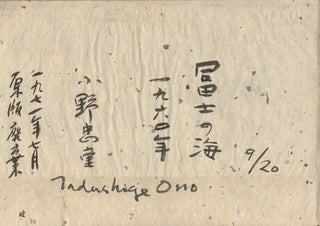 冨士の海
一九六〇年
小野忠重
一九七一年七月
原版廃棄
9/20
Tadashige Ono